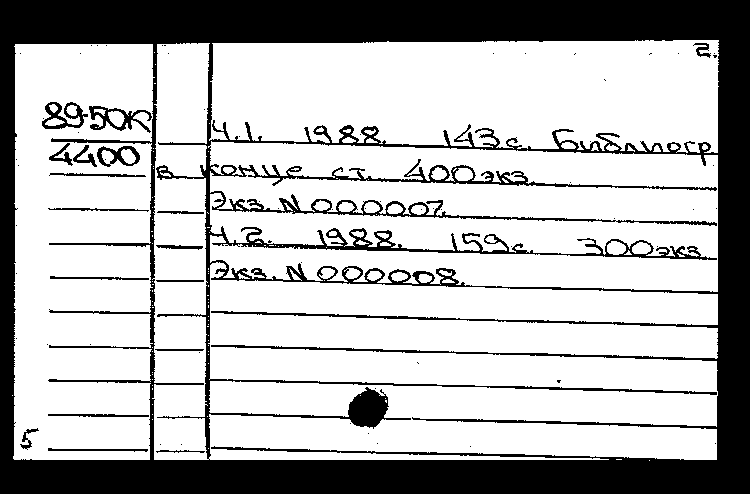 2.
89-50К Ч.1. 1988. 143с. Библиогр
4400 в конце ст. 400экз.
Экз. N 0000007.
Ч.2. 1988. 159с. 300экз
Экз. N 0000008.
5